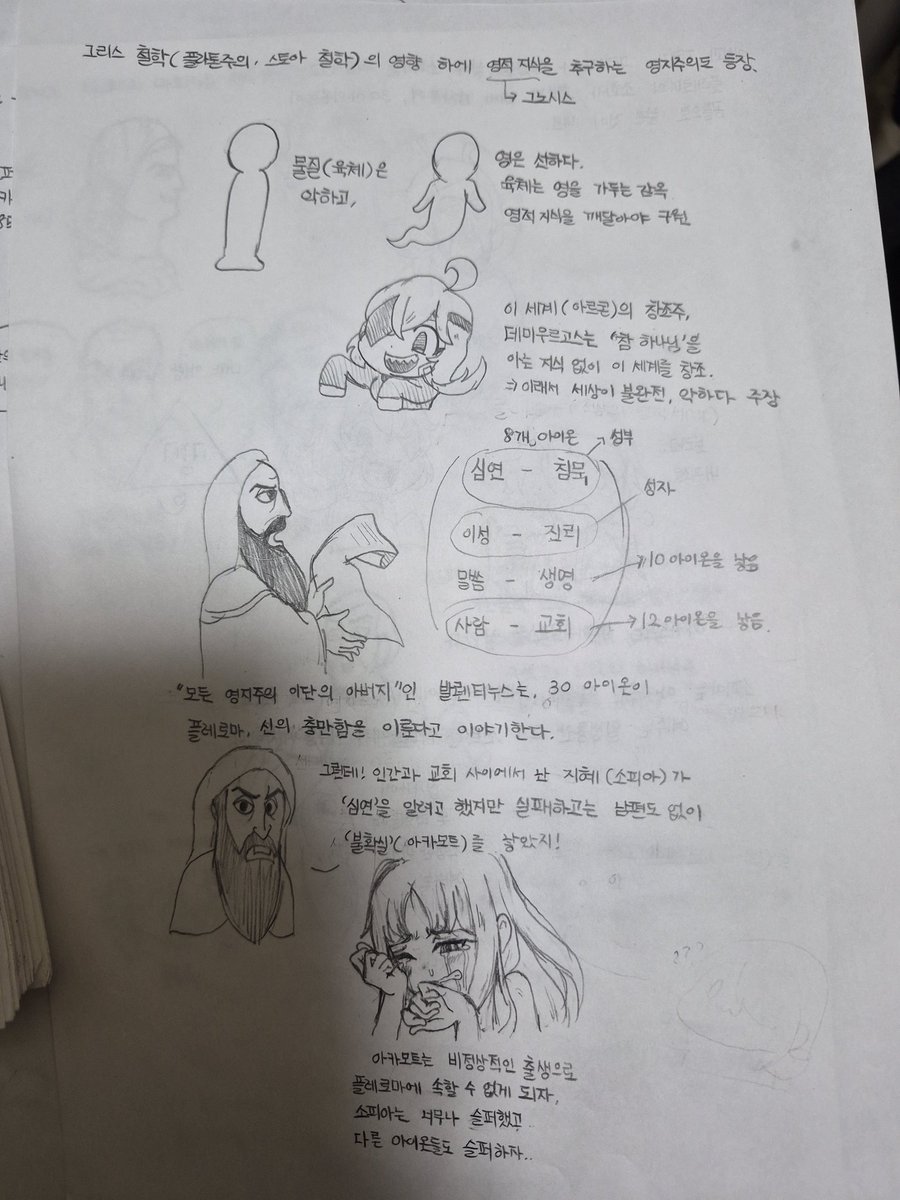 그리스 철학(플라톤주의, 스토아 철학)의 영향 하에 영적 지식을 추구하는 영지주의도 등장.
→ 그노시스
물질(육체)은
악하고,
영은 선하다.
육체는 영을 가두는 감옥
영적 지식을 깨달아야 구원
이 세계(아르콘)의 창조주,
데미우르고스는 '참 하나님'을
아는 지식 없이 이 세계를 창조.
⇒ 이래서 세상이 불완전, 악하다 주장
8개 아이온 → 성부
심연 - 침묵
성자
이성 - 진리
말씀 - 생명 → 10 아이온을 낳음
사람 - 교회 → 12 아이온을 낳음.
"모든 영지주의 이단의 아버지"인 발렌티누스는, 30 아이온이
플레로마, 신의 충만함을 이룬다고 이야기한다.
그런데! 인간과 교회 사이에서 난 지혜(소피아)가
'심연'을 알려고 했지만 실패하고는 남편도 없이
'불확실'(아카모트)를 낳았지!
???
아카모트는 비정상적인 출생으로
플레로마에 속할 수 없게 되자,
소피아는 너무나 슬퍼했고
다른 아이온들도 슬퍼하자..